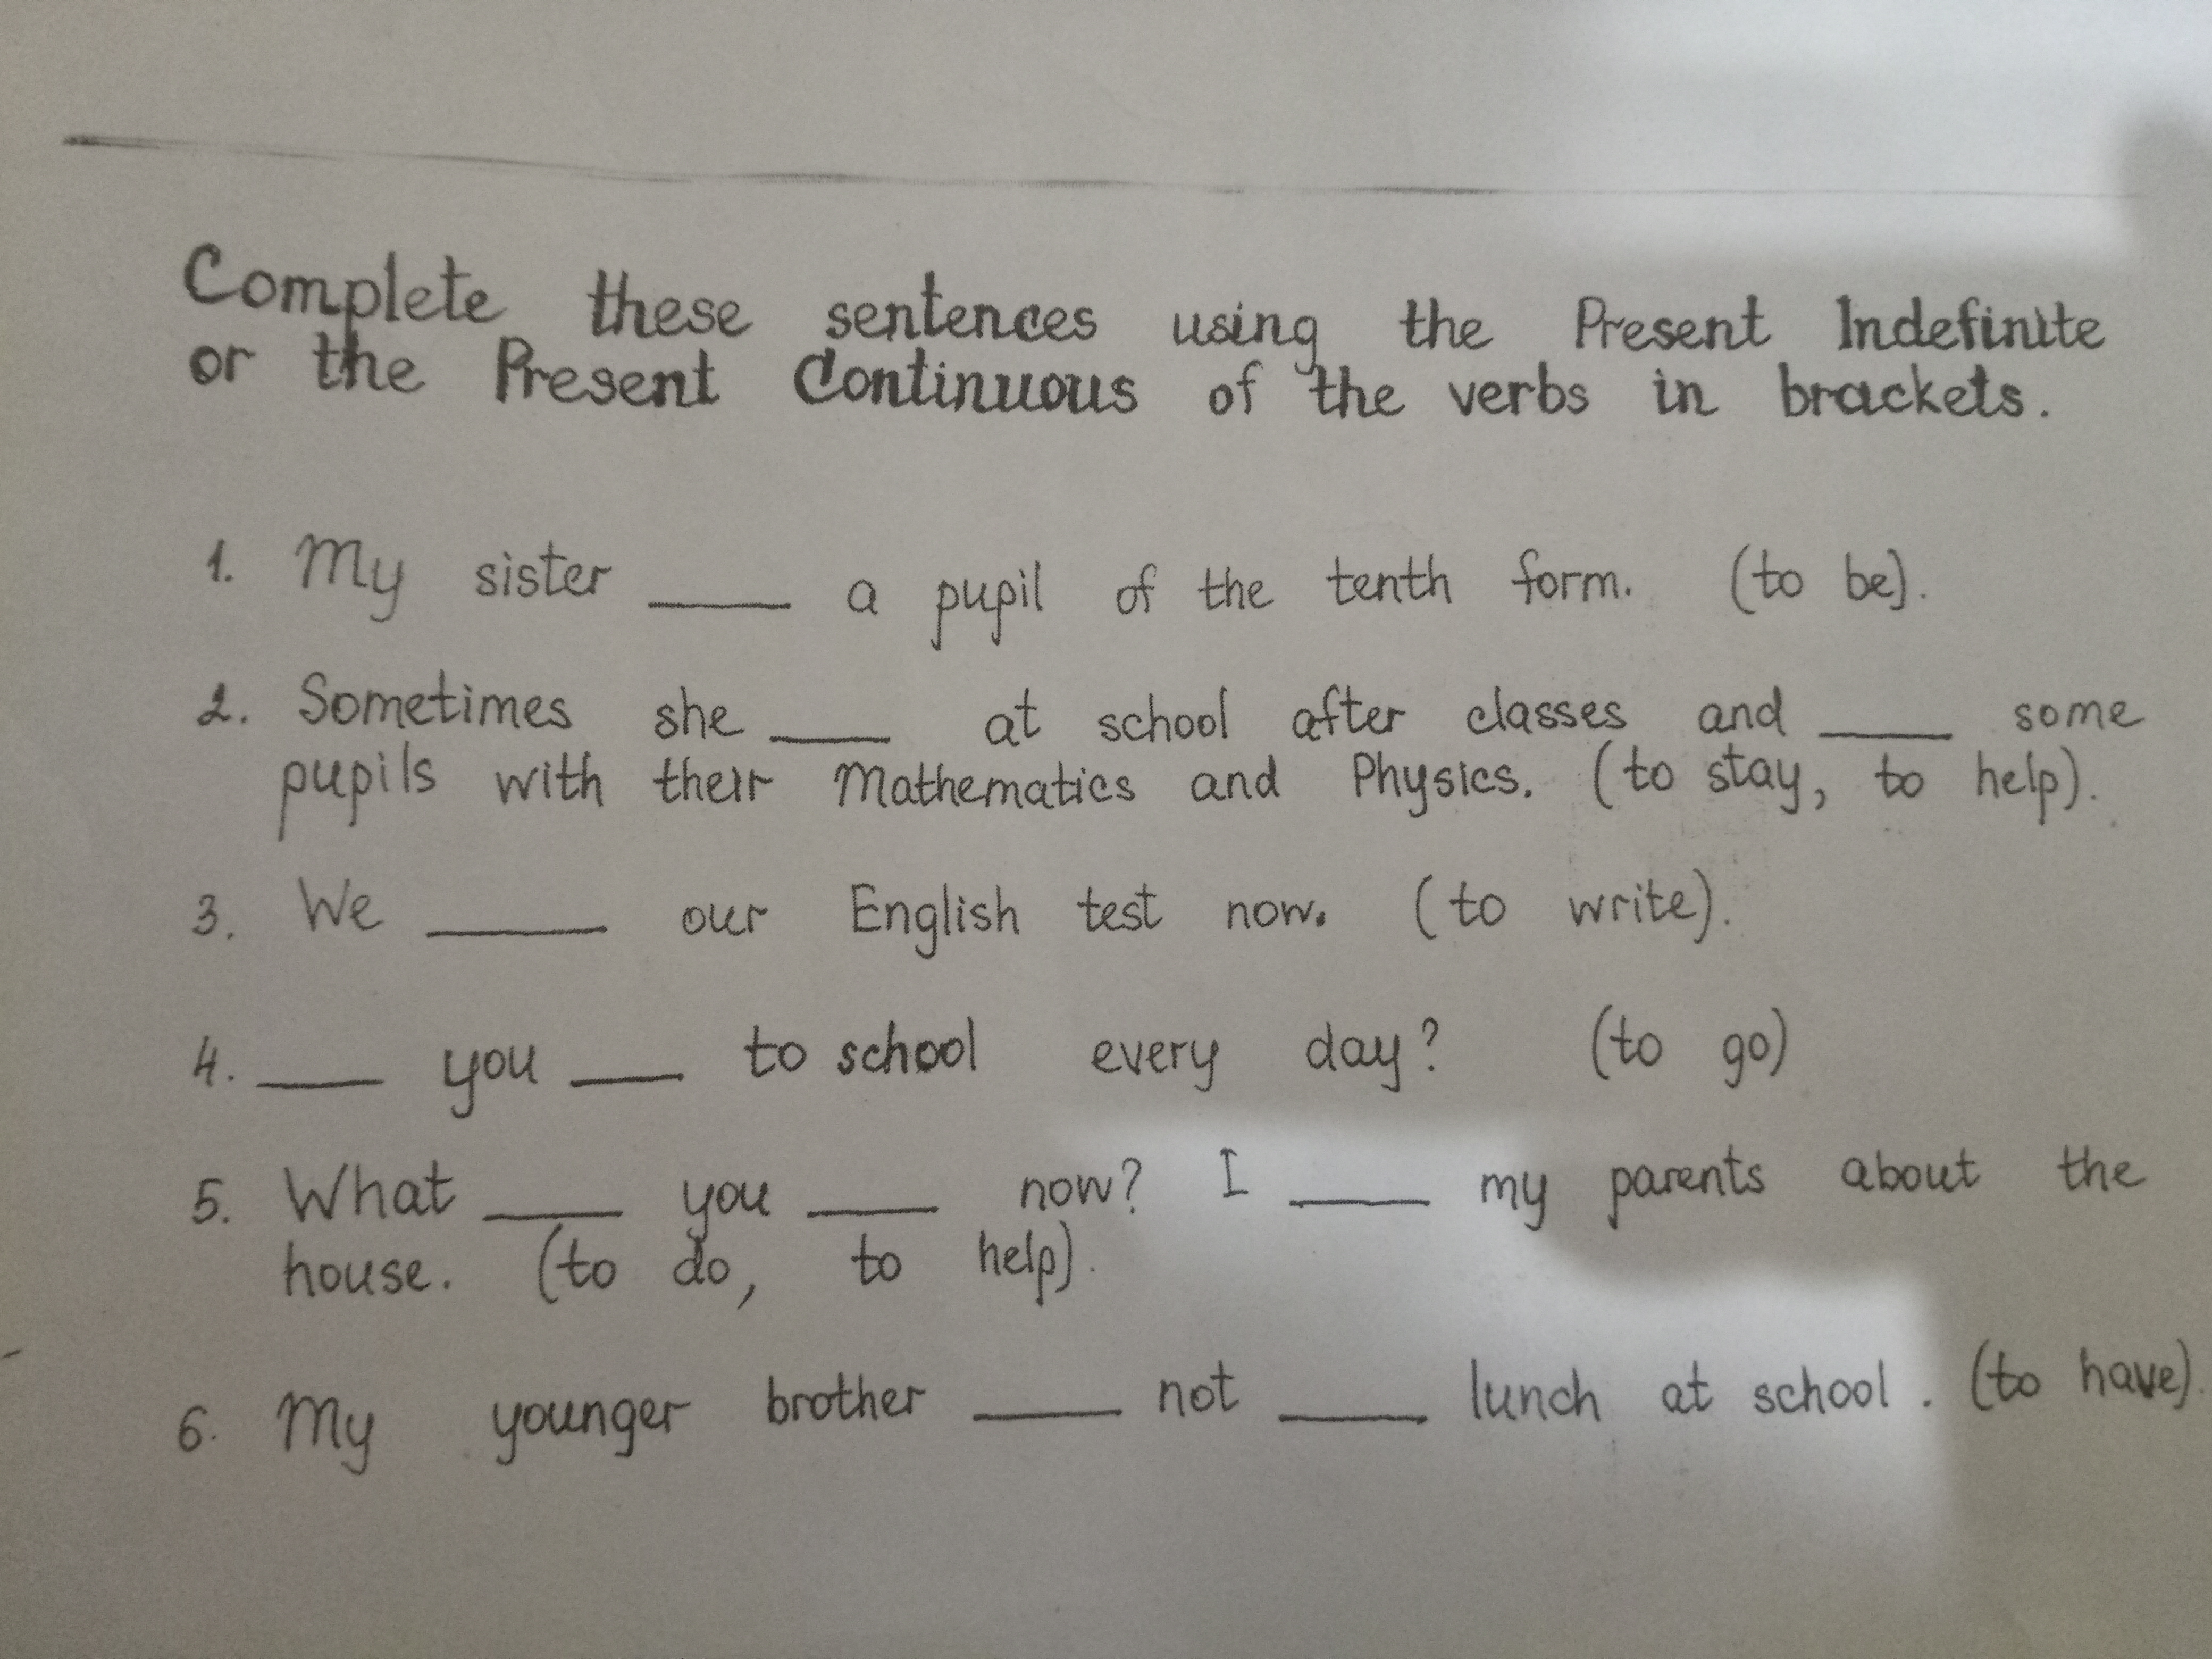 Complete these sentences using the Present Indefinite
or the Present Continuous of the verbs in brackets.
1. My sister ____ a pupil of the tenth form. (to be).
2. Sometimes she ____ at school after classes and ____ some
pupils with their Mathematics and Physics. (to stay, to help).
3. We ____ our English test now. (to write).
4. ____ you ____ to school every day? (to go)
5. What ____ you ____ now? I ____ my parents about the
house. (to do, to help).
6. My younger brother ____ not ____ lunch at school. (to have).